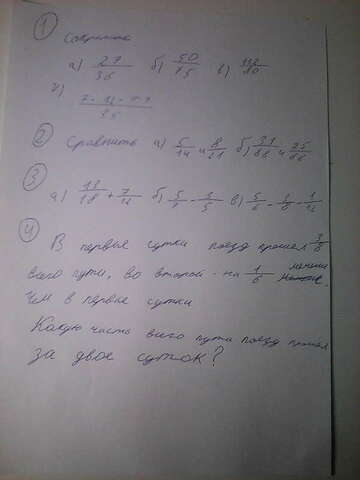 1
Сократить
а) 27/36 б) 50/75 в)
г)
2 Сравнить а) 5/14 и 8/21 б)
3
а) + б) 5/7 - 1/5 в) 5/6 - 1/8 -
4 В первые сутки поезд прошел 3/8
всего пути, во второй - на 1/6 менее
чем в первые сутки
Какую часть всего пути поезд прошел
за двое суток?